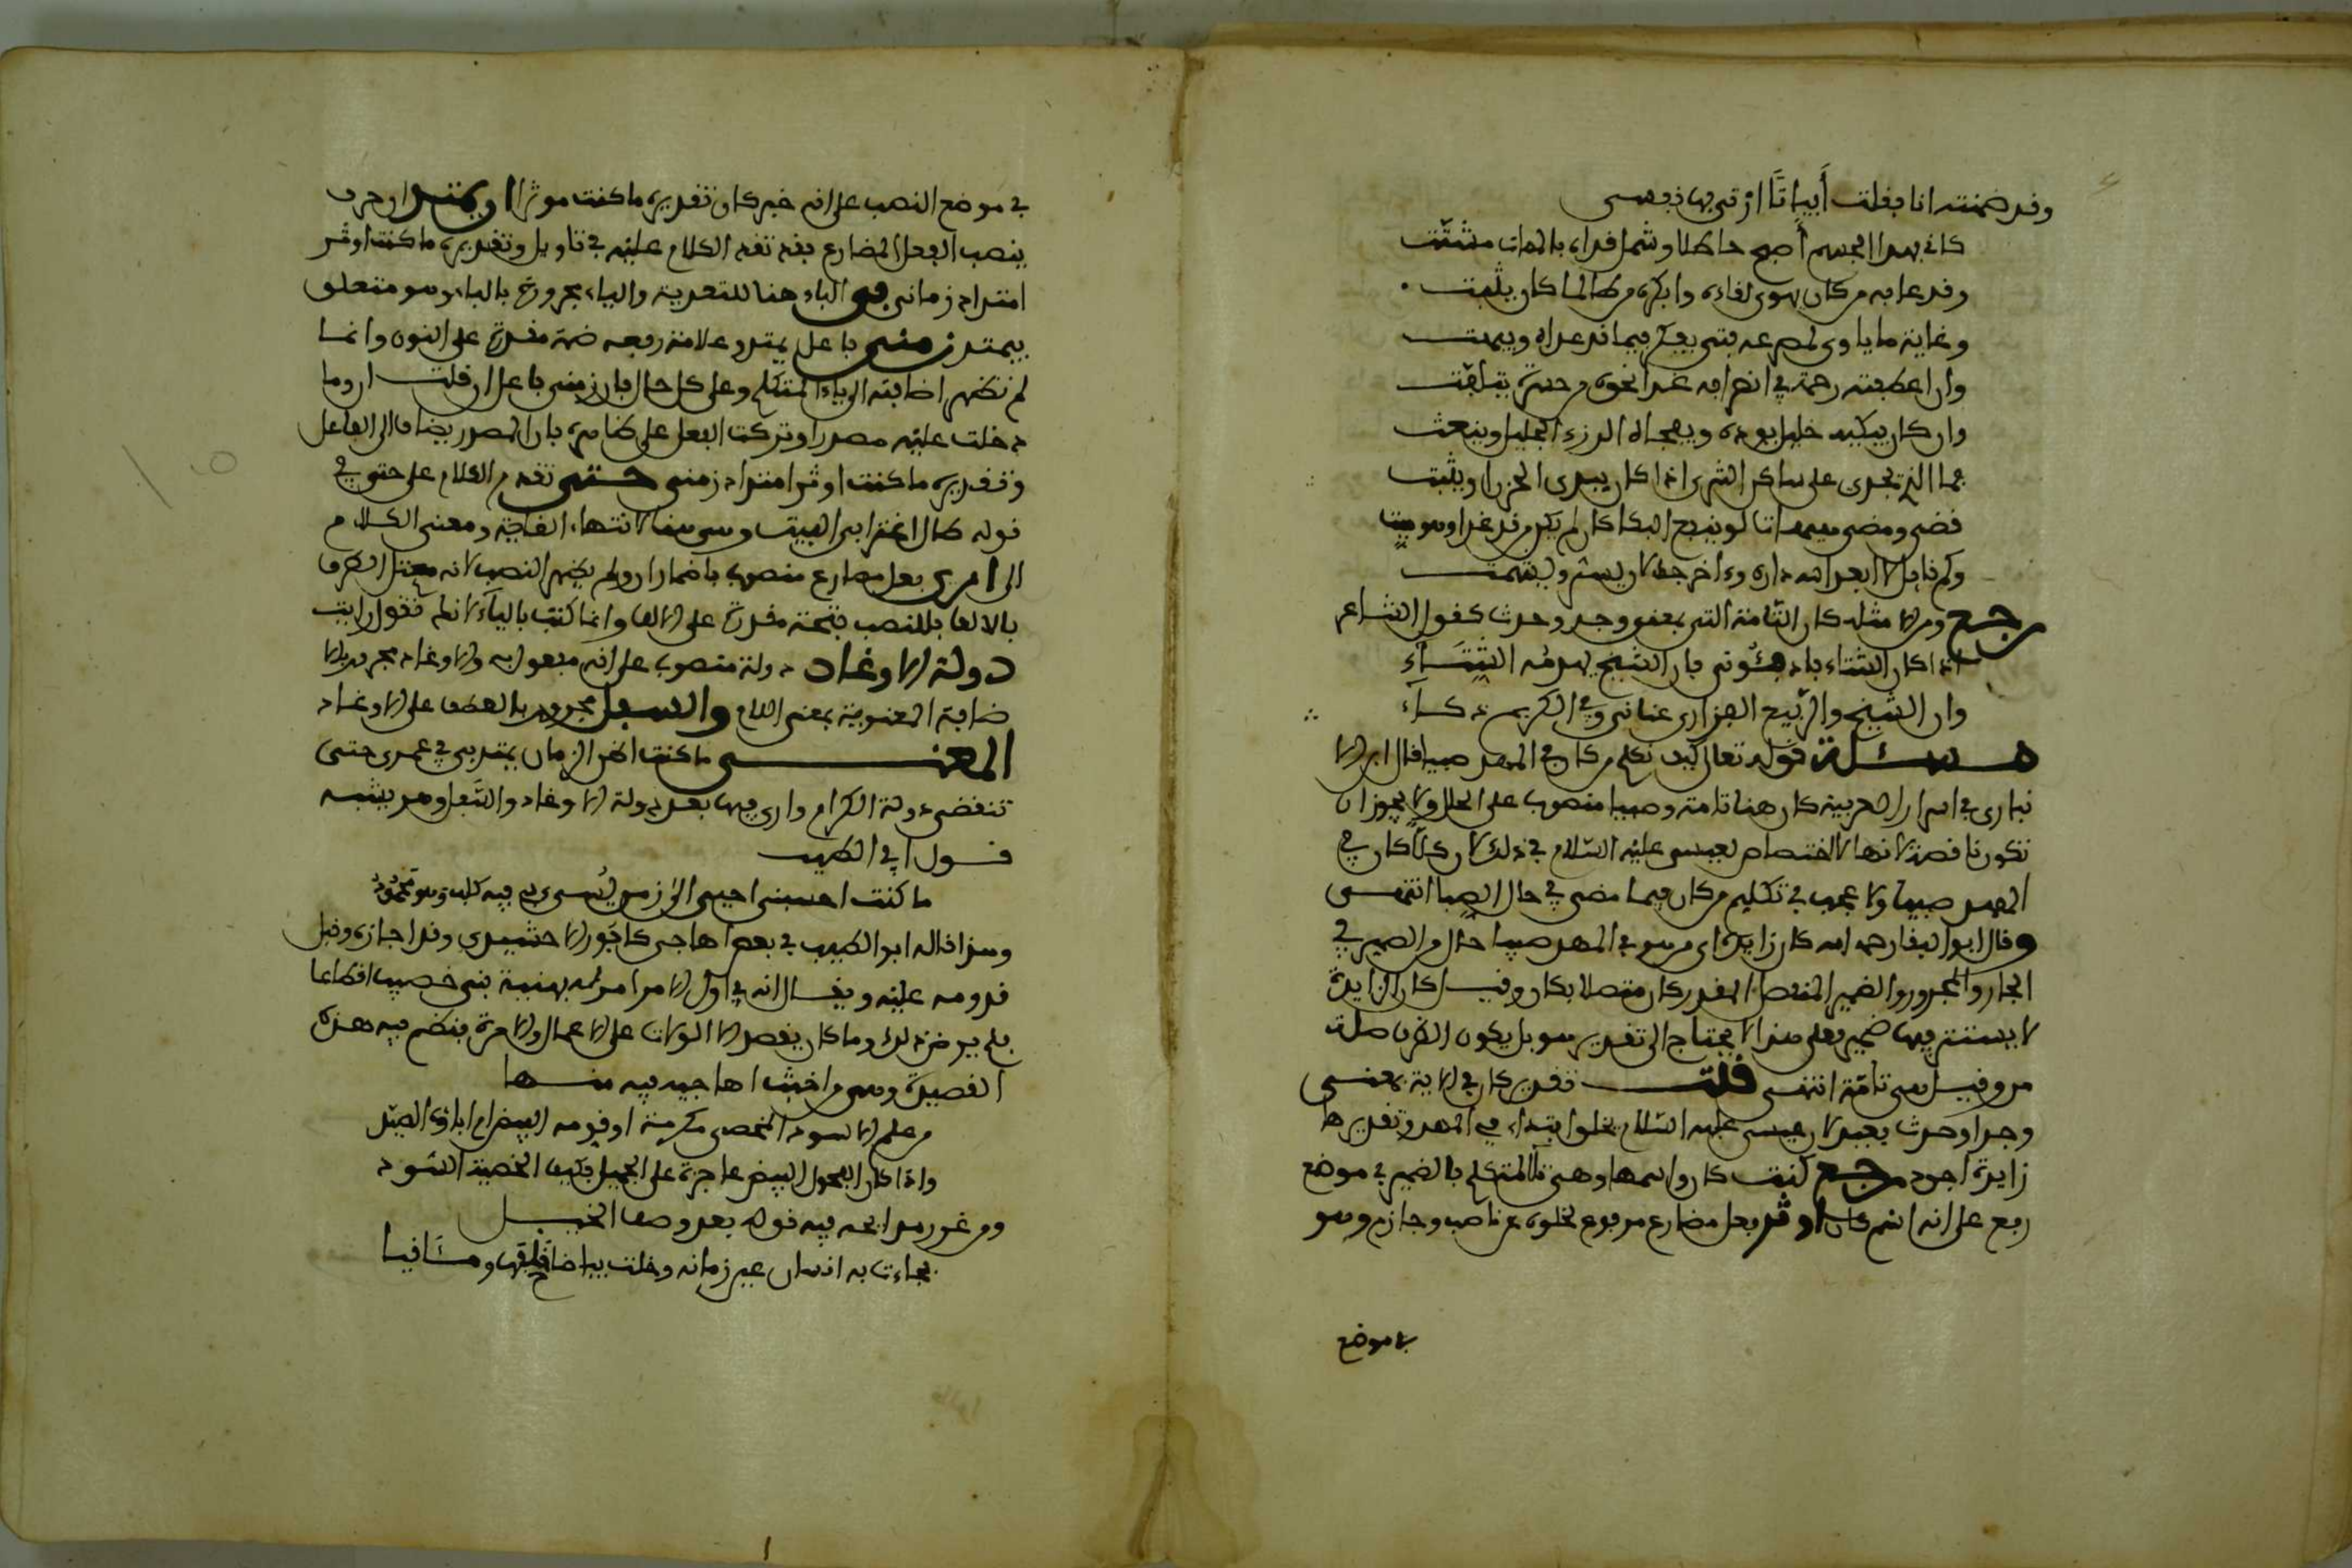 وقد ضمنته انا فقلت أبياتًا ارثي بها نفسي
كاني بهذا الجسم أصبح حاطلا وشمل قواه بالممات مشتّت
وقد عابه من كان يهوى لقاءه وابكى من طالما كان يشمت
وغاية ما ياوى لمصرعه فتى يفكر فيما قد عراه ويبهت
وان اعطفته رحمة في انصرافه غدا نحوه من حسرة يتلفّت
وان كان يبكيه خليل بوده ويفجاه الرزء الجليل ويبعث
فما الذي تجري على ساكن الثرى اذا كان يبدي الحزن او يثبت
قضى ومضى هيهات لو ينفع البكا كان لم يكن من قد غدا وهو ميت
وكم قايل لا ابعد الله داره وءاخر جذلان يسر ويشمت
رجع ومن الا مثله كان التامة التي بمعنى وجد وحدث كقول الشاعر
اذا كان الشتاء فادفئوني فان الشيخ يهدمه الشتاء
وان الشيخ والريح الفزاري عناني وفي الكريم ذكاء
مسئلة قوله تعالى كيف نكلم من كان في المهد صبيا قال ابن الا
نباري في اسرار العربية كان هنا تامة وصبيا منصوب على الحال ولا يجوز ان
تكون ناقصة لانها لا اختصاص لعيسى عليه السلام في ذلك لان كلّا كان في
المهد صبيا ولا عجب في تكليم من كان فيما مضى في حال الصبا انتهى
وقال ابو البقا رحمه الله كان زايدة اي من هو في المهد صبيا حال من الضمير في
الجار والمجرور والضمير المنفصل المقدر كان متصلا بكان وقيل كان الزايدة
لا يستتر فيها ضمير فعلى هذا لا يحتاج الى تقدير هو بل يكون الظرف صلة
من وقيل هي تامّة انتهى قلت تقدير كان في الاية بمعنى
وجد او حدث بعيد لان عيسى عليه السّلام يخلوا بتداء في المهد وتقديرها
زايدة اجود رجع كنت كان واسمها وهي تا المتكلم فالضمير في موضع
رفع على انه اسم كان اوثر فعل مضارع مرفوع لخلوه عن ناصب وجازم وهو
في موضع
في موضع النصب على انه خبر كان تقديره ما كنت موثرا ان يمتد ان حرف
ينصب الفعل المضارع فقد تقدم الكلام عليه في تاويل وتقديره ما كنت اوثر
امتداد زماني بي الباء هنا للتعدية والياء مجرورة بالباء وهو متعلق
بيمتد زمني فاعل يمتد وعلامة رفعه ضمة مقدرة على النون وانما
لم تظهر اضافته الى ياء المتكلم وعلى كل حال فان زمني فاعل ان قلت ان وما
دخلت عليه مصدرا وتركت الفعل على ظاهره فان المصدر يضاف الى الفاعل
وتقديره ما كنت اوثر امتداد زمني حتى تقدم الكلام على حتى في
قوله طال اغترابي البيت وهي هنا لانتهاء الغاية ومعنى الكلام
الى ارى فعل مضارع منصوب باضمار ان ولم يظهر النصب لانه معتل الطرف
بالالف فللنصب فتحة مقدرة على الالف وانما كتبت بالياء لانك تقول رايت
دولة الاوغاد دولة منصوب على انه مفعول به والاوغاد مجرور بالا
ضافة المعنوية بمعنى اللام والسفل مجرور بالعطف على الاوغاد
المعنى ما كنت اظن الزمان يمتد بي في عمري حتى
تنقضي دولة الكرام وارى فيها بعد دولة الاوغاد والسّفل وهو يشبه
قول ابي الطيب
ما كنت احسبني احيى الى زمن يُسيء بي فيه كلب وهو محمود
وهذا قاله ابو الطيب في بعض اهاجي كافور الاخشيدي وقد اجازه وقبل
قدومه عليه ويقال انه في اول الامر امر له بهنية بني خصيب اقطاعا
فلم يرض ذلك وما كان يقصد الا الولايات على الاعمال والامرة فنظم فيه هذه
القصيدة وهي من اخبث اهاجيه فيه منها
من علم الاسود المخصي مكرمة اقومه البيض ام اباؤه الصيد
واذا كان الفحول البيض عاجزة على الجميل فكيف الخصية السّود
ومن غرر مدايحه فيه قوله بعد وصف الخيل
فجاءت به انسان عين زمانه وخلت بياضا خلفها ومئاقيا